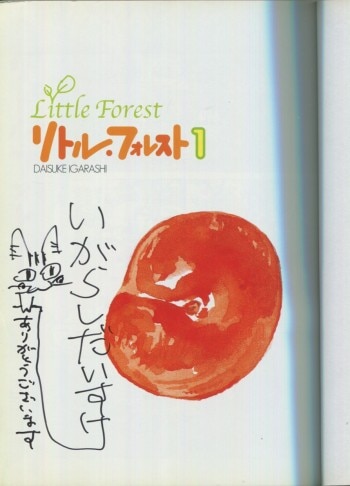 Little Forest
リトル・フォレスト1
DAISUKE IGARASHI
いがらしだいすけ
ありがとうございます